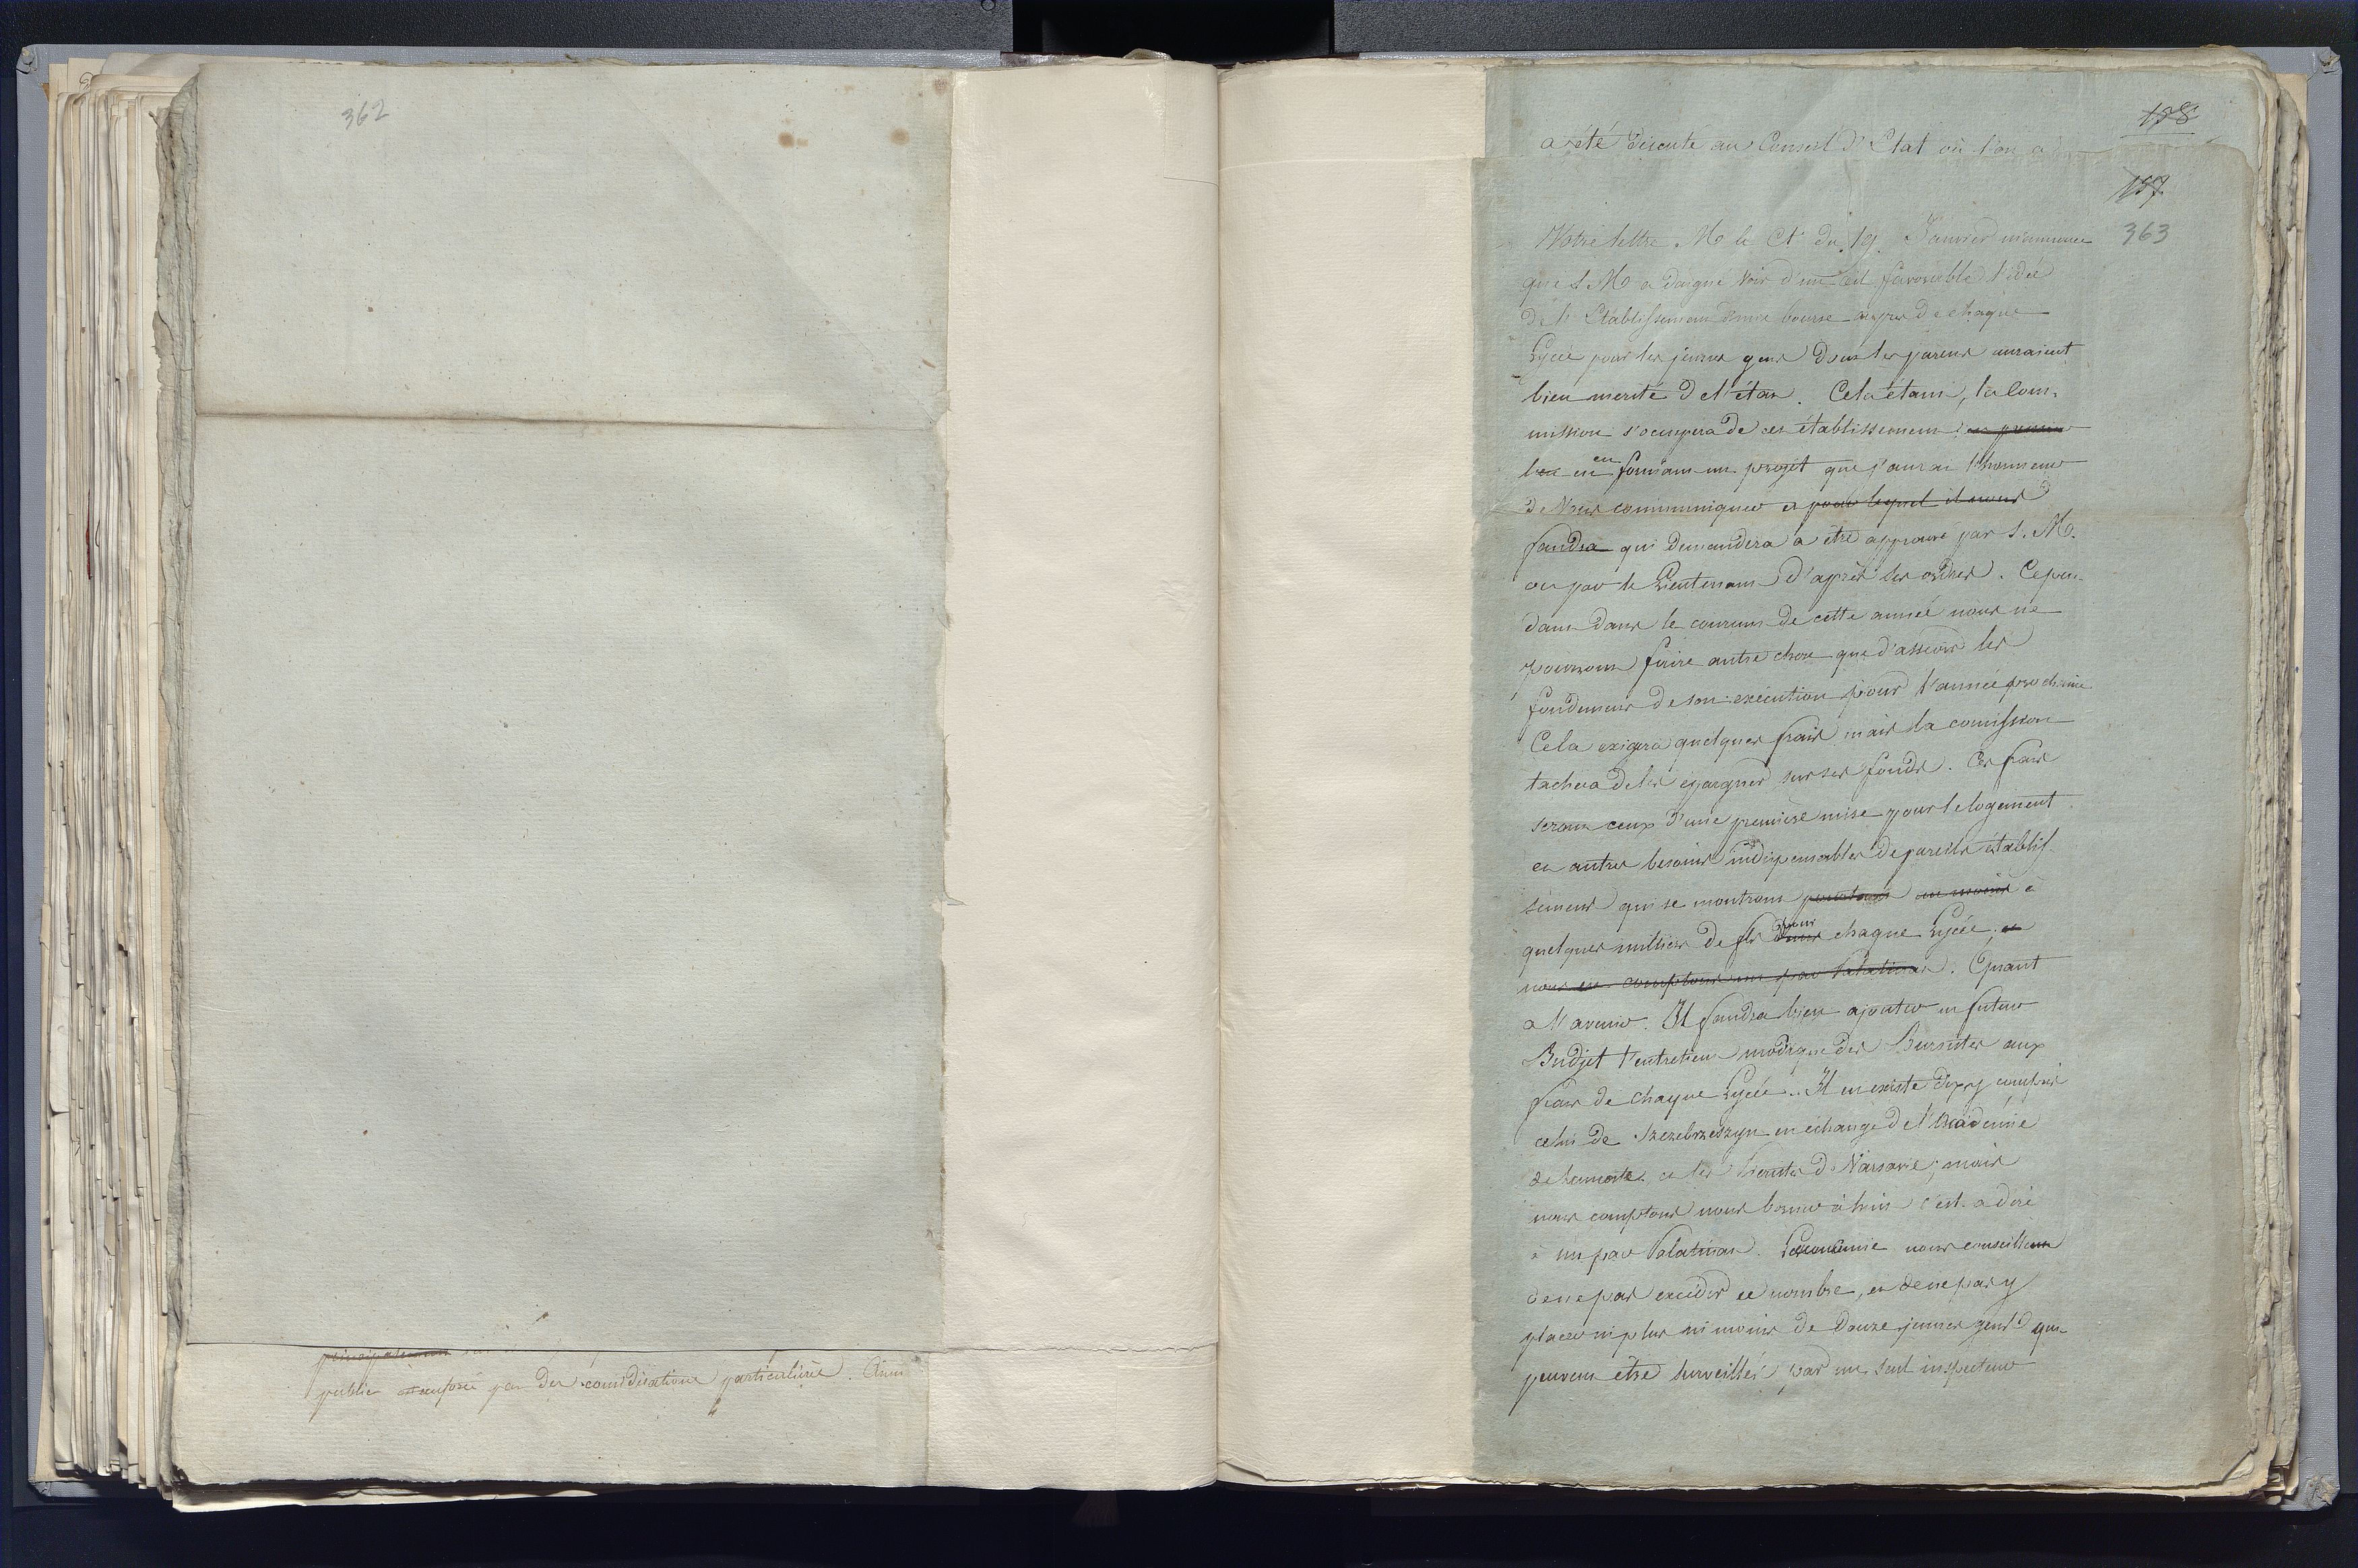 362
public par des considérations particulières. Ainsi
158
a été discuté au Conseil d'Etat où l'on a
157
363
Votre lettre M le Ct du 19 Janvier m'annonce
que S. M a daigné voir d'un œil favorable l'idée
de l'Etablissement d'une bourse auprès de chaque
Lycée pour les jeunes gens dont les parens auraient
bien merité de l'état. Cela étant, la Com-
mission s'occupera de ces établissemens
en en formant un projet que j'aurai l'honneur
de Vous communiquer et pour lequel il nous
faudra qui demandera à être approuvé par S. M.
ou par le Lieutenant d'après ses ordres. Cepen-
dant dans le courant de cette année nous ne
pourrons faire autre chose que d'asseoir les
fondemens de son exécution pour l'année prochaine
Cela exigera quelques frais mais la comission
tachera de les epargner sur ses fonds. Ces frais
seront ceux d'une première mise pour le logement
et autres besoins indispensables de pareils établis
semens qui se montront au moins à
quelques milliers de fls pour chaque Lycée, et
nous en comptons un par Palatinat. Quant
a l'avenir. Il faudra bien ajouter au futur
Budjet l'entretien modique des Bursistes aux
frais de chaque Lycée. Il en existe dix y compris
celui de Szczebrzeszyn en échange de l'Académie
de Zamość et les de Varsovie; mais
nous comptons nous borner à huit c'est a dire
à un par Palatinat. L'économie nous conseille
de ne pas excéder ce nombre, et de ne pas y
placer ni plus ni moins de Douze jeunes gens qui
peuvent être surveillés par un seul inspecteur